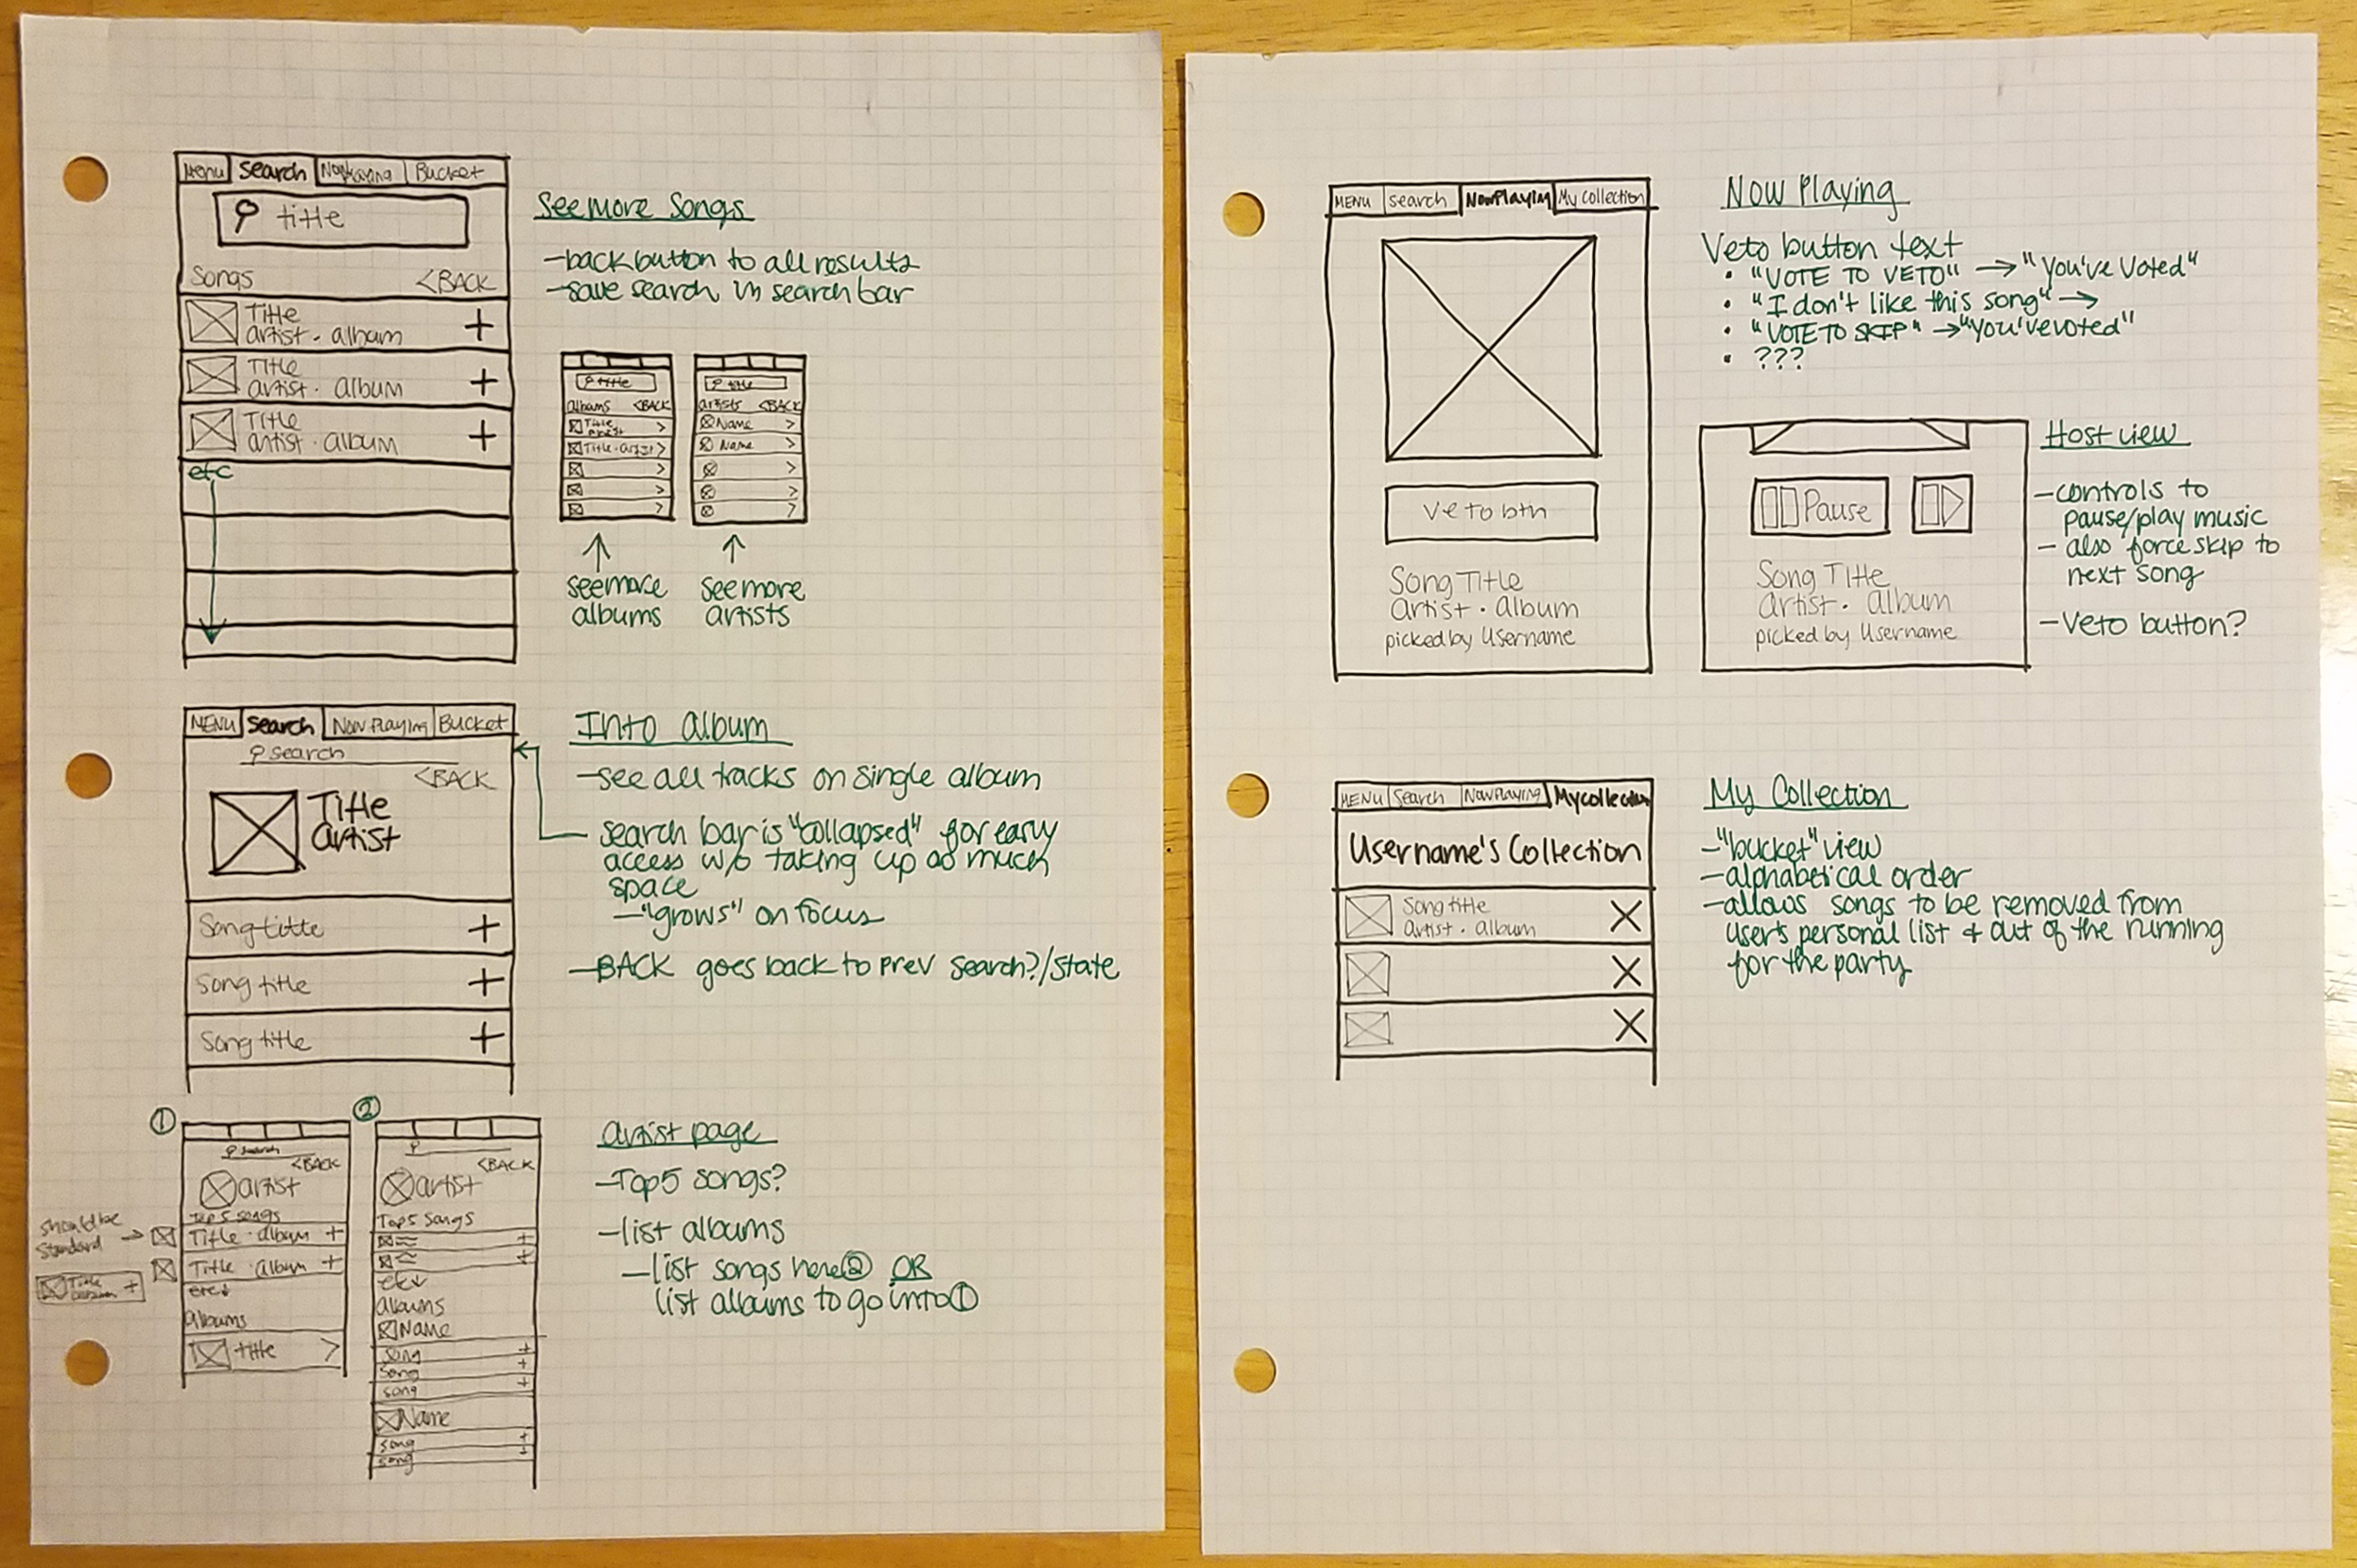 Menu Search Now Playing Bucket
title
Songs <BACK
Title
artist · album +
Title
artist · album +
Title
artist · album +
etc
See more Songs
- back button to all results
- save search in search bar
title
albums <BACK
Title
artist >
Title · artist >
>
>
>
see more
albums
title
artists <BACK
Name >
Name >
>
>
>
see more
artists
MENU Search Now Playing Bucket
search
<BACK
Title
artist
Song title +
Song title +
Song title +
Into album
- see all tracks on single album
- search bar is "collapsed" for early
access w/o taking up as much
space
- "grows" on focus
- BACK goes back to prev search?/state
①
search
<BACK
artist
Top 5 songs
Title · album +
Title · album +
etc↓
albums
title >
should be
standard →
Title
album +
②
<BACK
artist
Top 5 Songs
+
+
etc↓
albums
Name
song +
song +
song +
Name
song +
song +
artist page
- Top 5 songs?
- list albums
- list songs here ② OR
list albums to go into ①
MENU search Now Playing My collection
veto btn
Song Title
artist · album
picked by Username
Now Playing
Veto button text
• "VOTE TO VETO" → "You've Voted"
• "I don't like this song" →
• "VOTE TO SKIP" → "You've voted"
• ???
Pause
Song Title
artist · album
picked by Username
Host view
- controls to
pause/play music
- also force skip to
next song
- Veto button?
MENU Search Now Playing My collection
Username's Collection
Song title
artist · album X
X
X
My Collection
- "bucket" view
- alphabetical order
- allows songs to be removed from
user's personal list + out of the running
for the party